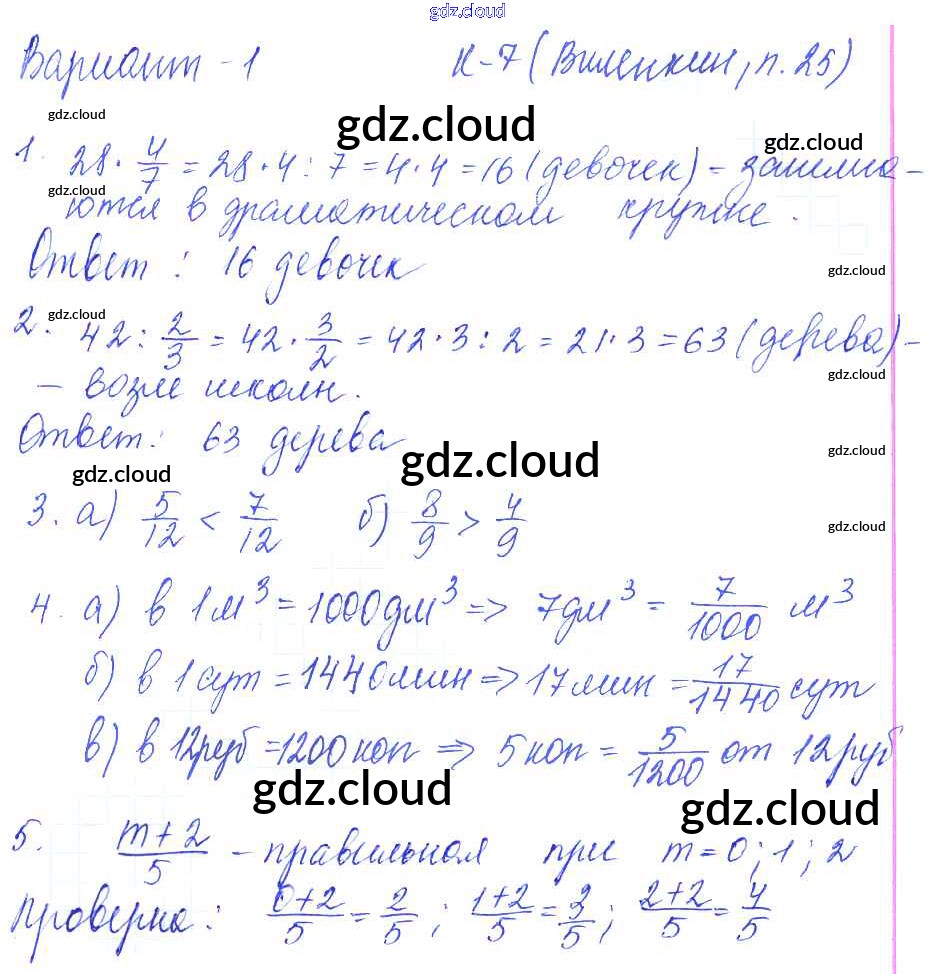 gdz.cloud
Вариант - 1 К-7 (Виленкин, п. 25)
gdz.cloud
gdz.cloud
gdz.cloud
1. 28 · 4/7 = 28 · 4 : 7 = 4 · 4 = 16 (девочек) - занима-
gdz.cloud
ются в драматическом кружке.
Ответ : 16 девочек
gdz.cloud
gdz.cloud
2. 42 : 2/3 = 42 · 3/2 = 42 · 3 : 2 = 21 · 3 = 63 (дерева) -
gdz.cloud
- возле школы.
Ответ: 63 дерева
gdz.cloud
gdz.cloud
gdz.cloud
3. а) 5/12 < 7/12 б) 8/9 > 4/9
gdz.cloud
4. а) в 1 м³ = 1000 дм³ => 7 дм³ = 7/1000 м³
б) в 1 сут = 1440 мин => 17 мин = 17/1440 сут
в) в 12 руб = 1200 коп => 5 коп = 5/1200 от 12 руб
gdz.cloud
gdz.cloud
5. m+2/5 - правильная при m = 0 ; 1 ; 2
Проверка : 0+2/5 = 2/5 ; 1+2/5 = 3/5 ; 2+2/5 = 4/5